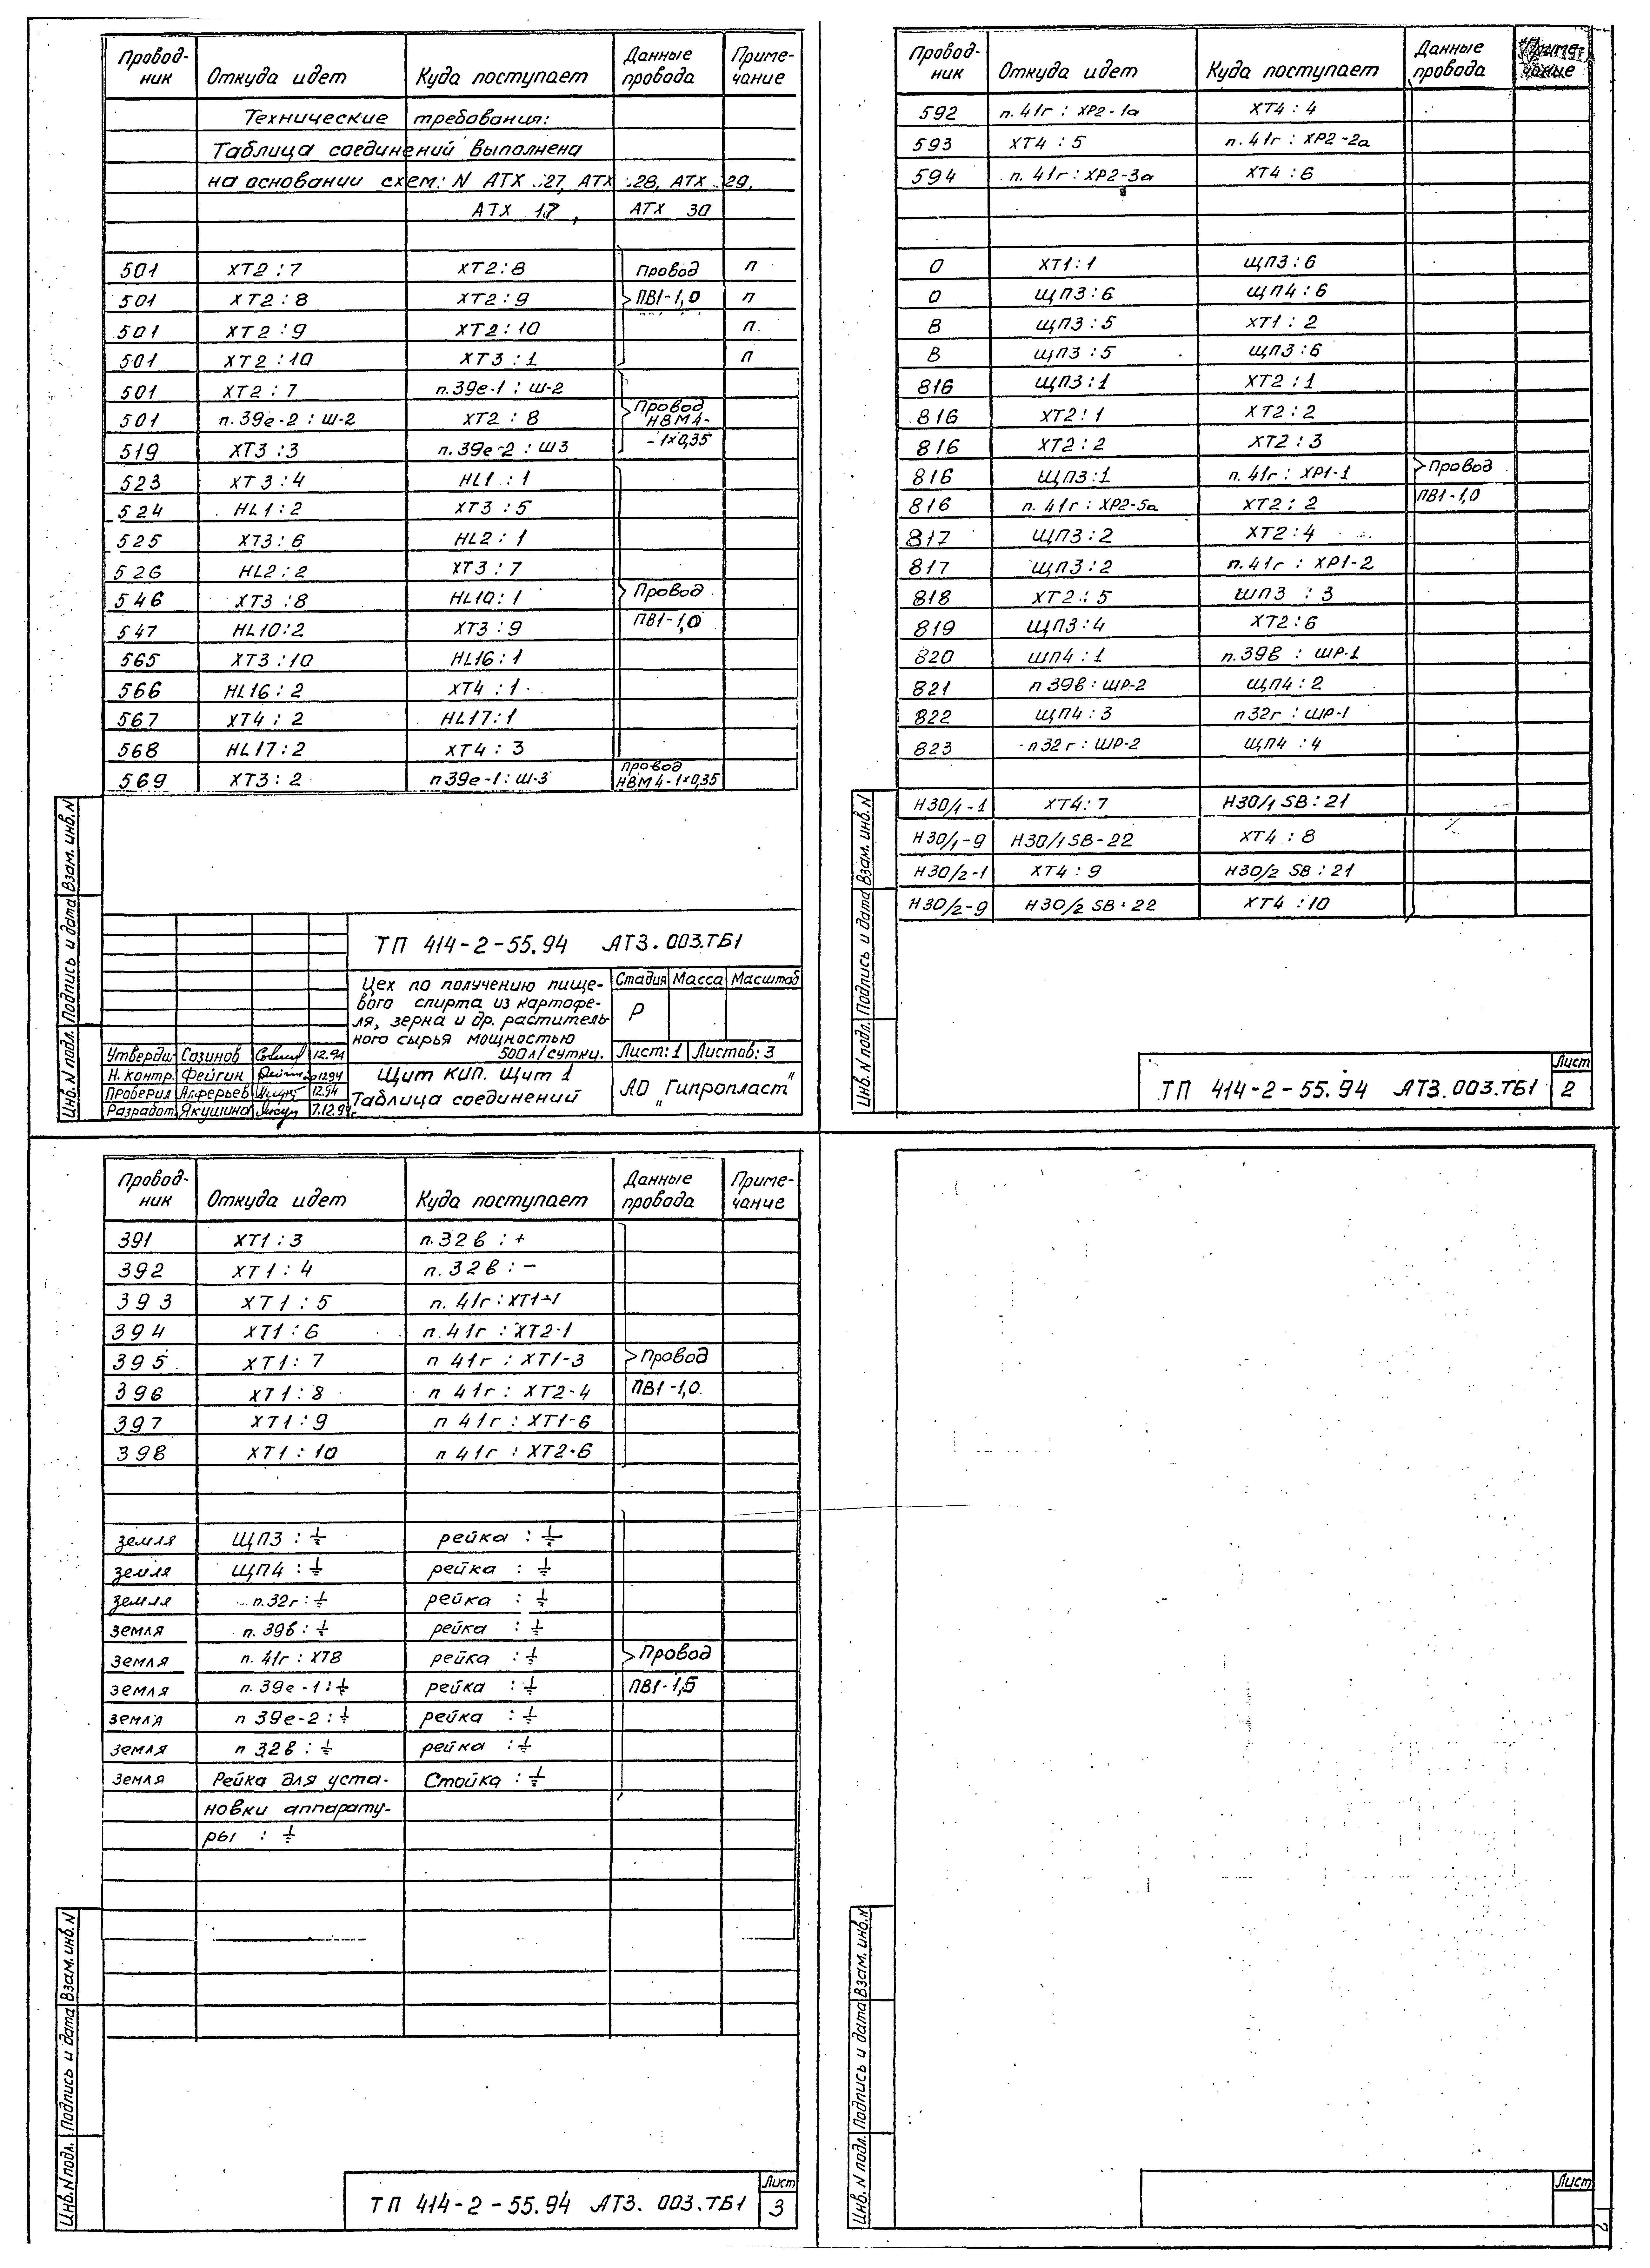 Провод-ник Откуда идет Куда поступает Данные провода Приме-чание
Технические требования:
Таблица соединений выполнена
на основании схем: N АТХ 27, АТХ 28, АТХ 29,
АТХ 17, АТХ 30
501 ХТ2:7 ХТ2:8 Провод п
501 ХТ2:8 ХТ2:9 ПВ1-1,0 п
501 ХТ2:9 ХТ2:10 п
501 ХТ2:10 ХТ3:1 п
501 ХТ2:7 п.39е-1:Ш-2
501 п.39е-2:Ш-2 ХТ2:8 Провод НВМ4-
519 ХТ3:3 п.39е-2:Ш3 -1×0,35
523 ХТ3:4 HL1:1
524 HL1:2 ХТ3:5
525 ХТ3:6 HL2:1
526 HL2:2 ХТ3:7
546 ХТ3:8 HL10:1 Провод
547 HL10:2 ХТ3:9 ПВ1-1,0
565 ХТ3:10 HL16:1
566 HL16:2 ХТ4:1
567 ХТ4:2 HL17:1
568 HL17:2 ХТ4:3
569 ХТ3:2 п39е-1:Ш-3 Провод НВМ4-1×0,35
Взам. инв. N
Подпись и дата
Инв. N подл.
ТП 414-2-55.94 АТ3.003.ТБ1
Цех по получению пище-
вого спирта из картофе-
ля, зерна и др. раститель-
ного сырья мощностью
500л/сутки.
Стадия Масса Масштаб
Р
Лист:1 Листов:3
Утвердил Созинов 12.94
Н. контр. Фейгин 1294
Проверил Алферьев 12.94
Разработ. Якушина 7.12.94г.
Щит КИП. Щит 1
Таблица соединений
АО "Гипропласт"
Провод-ник Откуда идет Куда поступает Данные провода Приме-чание
592 п.41г:ХР2-1а ХТ4:4
593 ХТ4:5 п.41г:ХР2-2а
594 п.41г:ХР2-3а ХТ4:6
0 ХТ1:1 ЩП3:6
0 ЩП3:6 ЩП4:6
В ЩП3:5 ХТ1:2
В ЩП3:5 ЩП3:6
816 ЩП3:1 ХТ2:1
816 ХТ2:1 ХТ2:2
816 ХТ2:2 ХТ2:3
816 ЩП3:1 п.41г:ХР1-1 Провод
816 п.41г:ХР2-5а ХТ2:2 ПВ1-1,0
817 ЩП3:2 ХТ2:4
817 ЩП3:2 п.41г:ХР1-2
818 ХТ2:5 ШП3:3
819 ЩП3:4 ХТ2:6
820 ШП4:1 п.39в:ШР-1
821 п39в:ШР-2 ЩП4:2
822 ЩП4:3 п32г:ШР-1
823 п32г:ШР-2 ЩП4:4
Н30/1-1 ХТ4:7 Н30/1 SB:21
Н30/1-9 Н30/1 SB-22 ХТ4:8
Н30/2-1 ХТ4:9 Н30/2 SB:21
Н30/2-9 Н30/2 SB:22 ХТ4:10
Взам. инв. N
Подпись и дата
Инв. N подл.
ТП 414-2-55.94 АТ3.003.ТБ1
Лист
2
Провод-ник Откуда идет Куда поступает Данные провода Приме-чание
391 ХТ1:3 п.32в:+
392 ХТ1:4 п.32в:-
393 ХТ1:5 п.41г:ХТ1-1
394 ХТ1:6 п.41г:ХТ2-1
395 ХТ1:7 п 41г:ХТ1-3 Провод
396 ХТ1:8 п 41г:ХТ2-4 ПВ1-1,0
397 ХТ1:9 п 41г:ХТ1-6
398 ХТ1:10 п 41г:ХТ2-6
земля ЩП3:⏚ рейка:⏚
земля ЩП4:⏚ рейка:⏚
земля п.32г:⏚ рейка:⏚
земля п.39в:⏚ рейка:⏚
земля п.41г:ХТ8 рейка:⏚ Провод
земля п.39е-1:⏚ рейка:⏚ ПВ1-1,5
земля п 39е-2:⏚ рейка:⏚
земля п 32в:⏚ рейка:⏚
земля Рейка для уста- Стойка:⏚
новки аппарату-
ры:⏚
Взам. инв. N
Подпись и дата
Инв. N подл.
ТП 414-2-55.94 АТ3.003.ТБ1
Лист
3
Взам. инв. N
Подпись и дата
Инв. N подл.
Лист